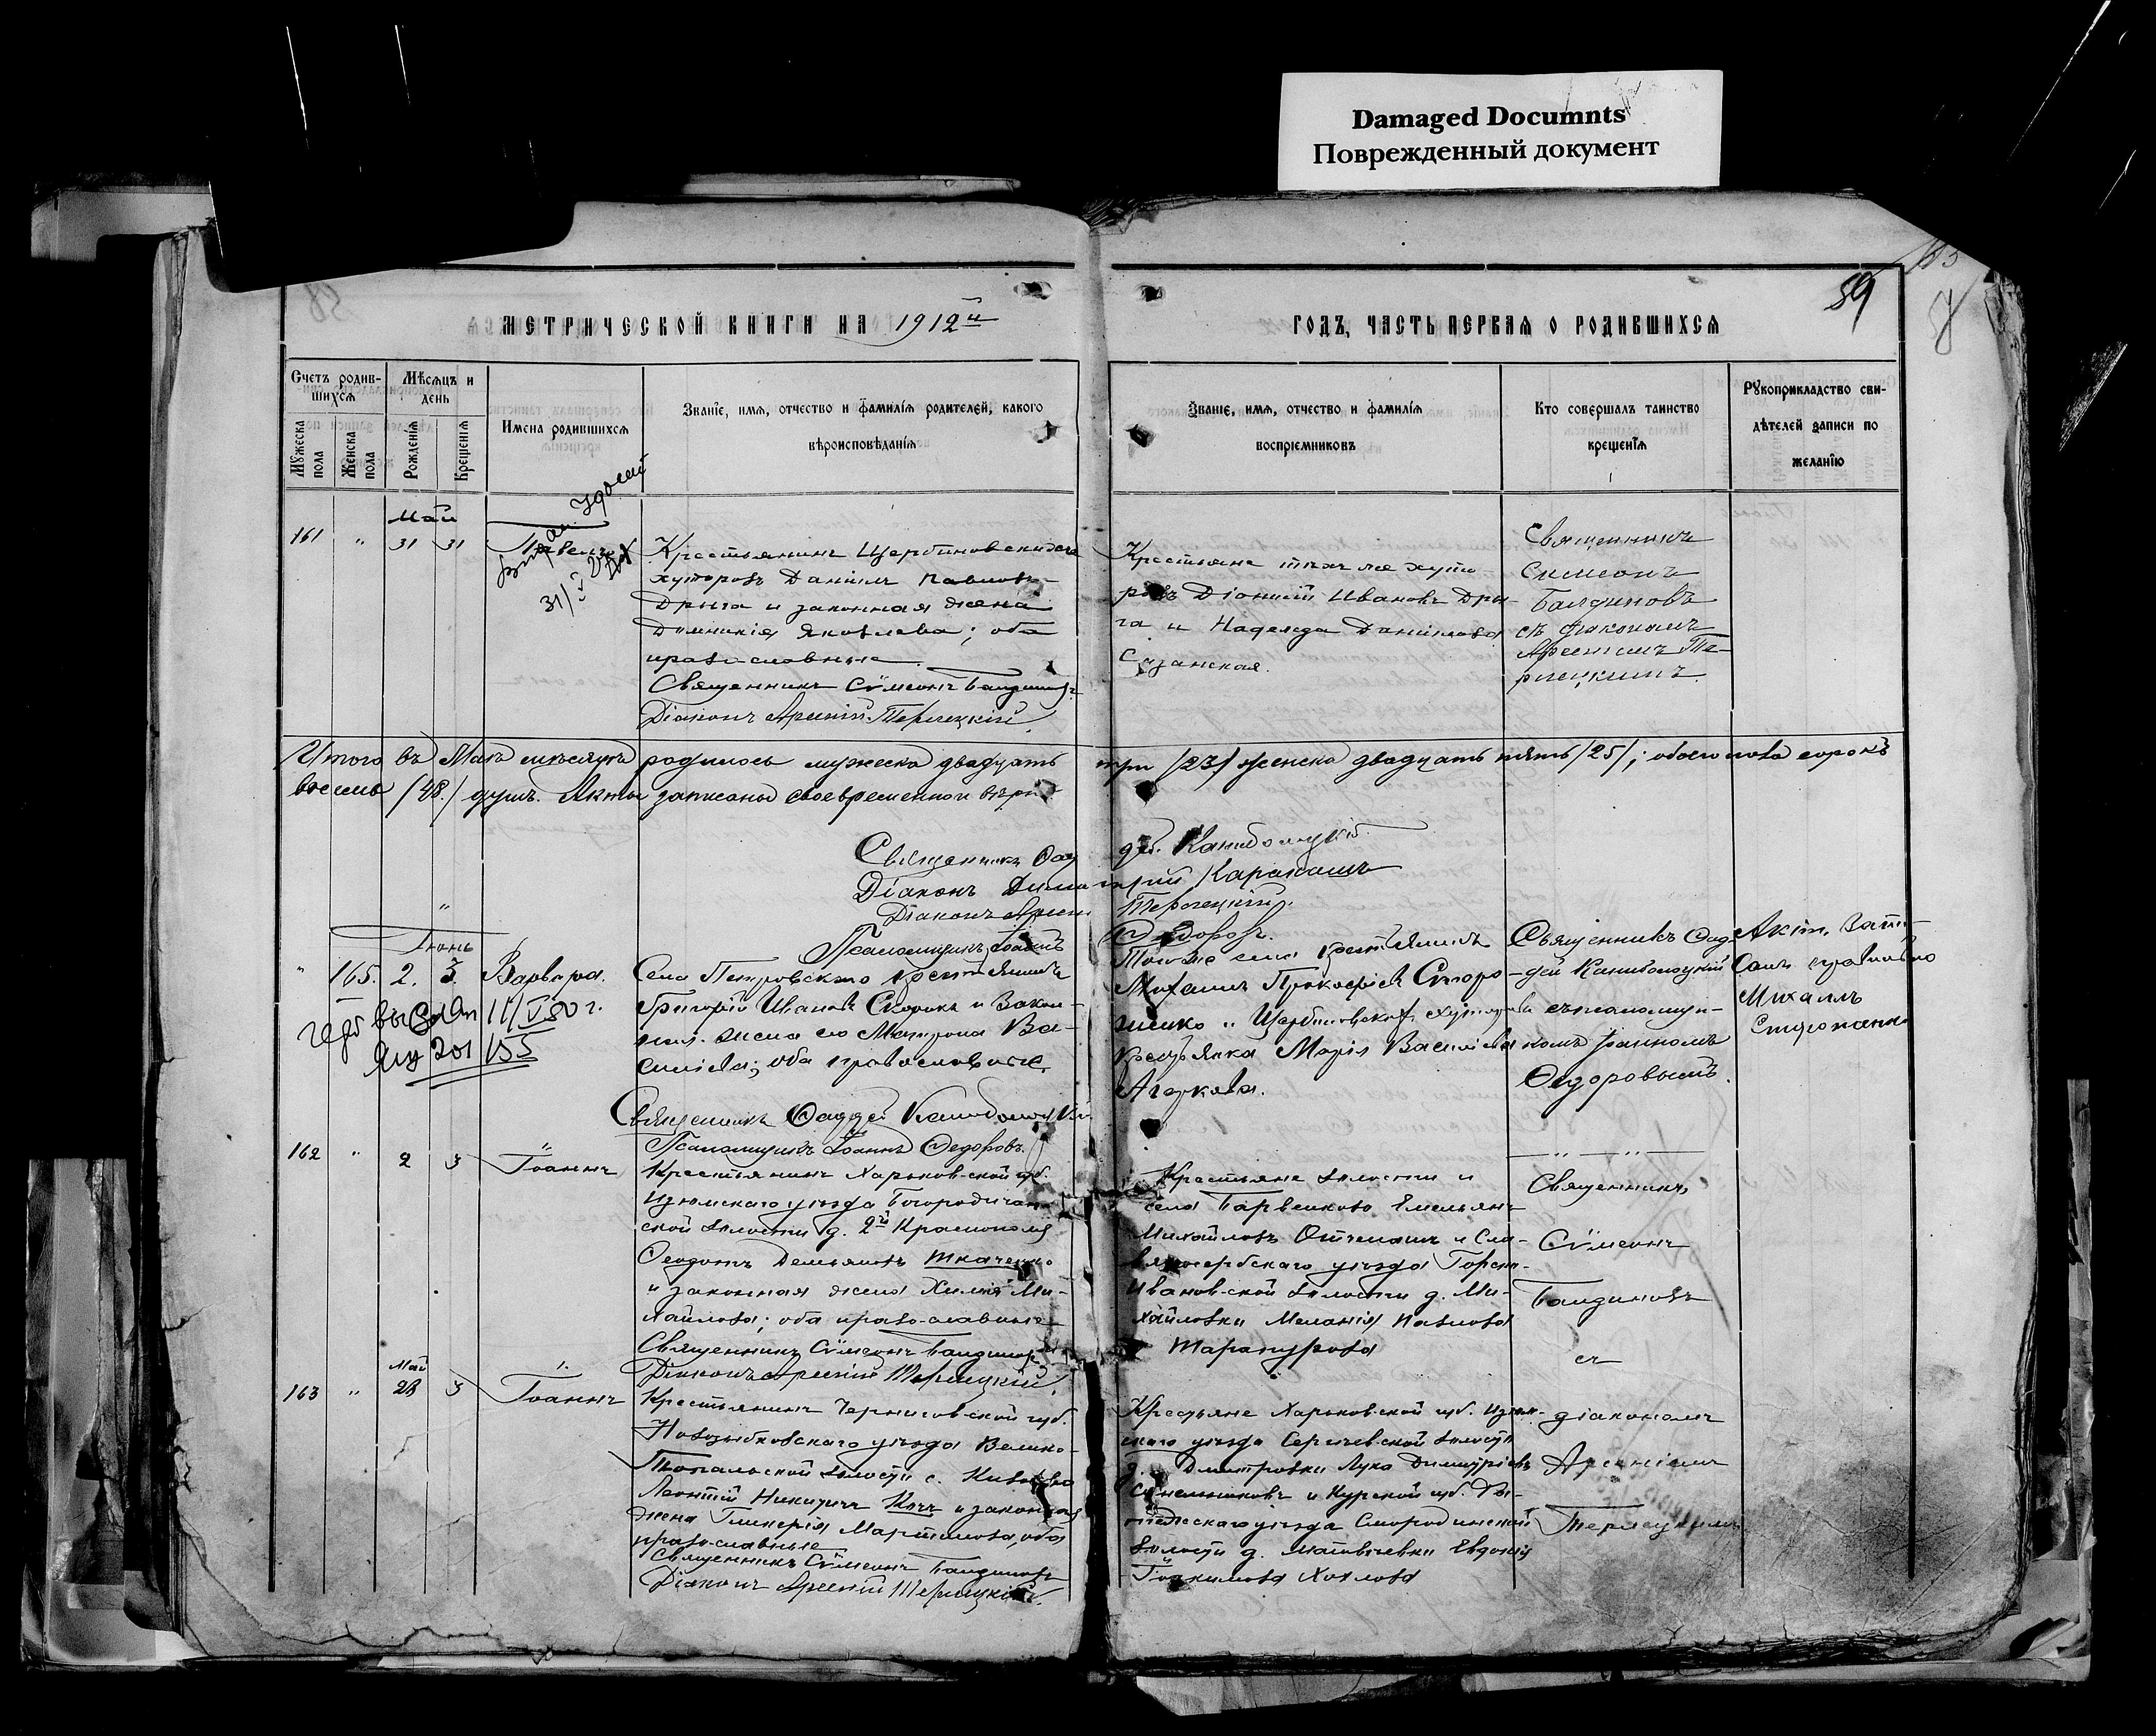 Damaged Documnts
Поврежденный документ
59
МЕТРИЧЕСКОЙ КНИГИ НА 1912й
ГОДЪ, ЧАСТЬ ПЕРВАЯ О РОДИВШИХСЯ
Счетъ родив-
шихся
Мужеска пола
Женска пола
Мѣсяцъ и
день
Рожденія
Крещенія
Имена родившихся
Званіе, имя, отчество и фамилія родителей, какого
вѣроисповѣданія
Званіе, имя, отчество и фамилія
воспріемниковъ
Кто совершалъ таинство
крещенія
Рукоприкладство сви-
дѣтелей записи по
желанію
Май
161 " 31 31
Крестьянинъ Щербиновскихъ
хуторовъ Даніилъ Павловъ
Дрыга и законная жена
Домникія Яковлева; оба
православные.
Священникъ Сѵмеонъ Балдиновъ
Діаконъ Арсеній Терлецкій.
Крестьяне тѣхъ же хуто-
ровъ Діонисій Ивановъ Дры-
га и Надежда Даніилова
Сазанская.
Священникъ
Симеонъ
Балдиновъ
съ діакономъ
Арсеніемъ Те-
рлецкимъ.
Итого въ Маѣ мѣсяцѣ родилось мужеска двадцать три /23/ женска двадцать пять /25/; обоего пола сорокъ
восемь /48./ душъ. Акты записаны своевременно и вѣрно.
Священникъ Фаддей
Діаконъ Димитрій Каракашъ
Діаконъ Арсеній Терлецкій.
Псаломщикъ Іоаннъ Ѳедоровъ.
Іюнь
" 165. 2. 3. Варвара.
11/V 80 г.
Села Петровскаго крестьянинъ
Григорій Ивановъ и закон-
ная жена его Матрона Ва-
силіева; оба православные.
Священникъ Фаддей
Псаломщикъ Іоаннъ Ѳедоровъ.
Того же села крестьянинъ
Михаилъ Прокофіевъ Сторо-
женко и Щербиновскихъ хуторовъ
крестьянка Марія Василіева
Агаркова.
Священникъ Фад-
дей
съ псаломщи-
комъ Іоанномъ
Ѳедоровымъ.
Михаилъ
162 " 2 3 Іоаннъ
Крестьянинъ Харьковской губ.
Изюмскаго уѣзда Богородичан-
ской волости д. 2й Краснополя
Ѳеодотъ Демьяновъ Ткаченко
и законная жена Ми-
хайлова; оба православные
Священникъ Сѵмеонъ Балдиновъ
Діаконъ Арсеній Терлецкій.
Крестьяне волости и
села Барвенково Емельянъ
Михайловъ Отченашъ и Сла-
вяносербскаго уѣзда Горско-
Ивановской волости д. Ми-
хайловки Меланія Павлова
Священникъ
Сѵмеонъ
Балдиновъ
съ
Май
163 " 28 3 Іоаннъ
Крестьянинъ Черниговской губ.
Новозыбковскаго уѣзда Велико-
Топальской волости с.
Леонтій Никитичъ и законная
жена Гликерія Мартинова, оба
православные
Священникъ Сѵмеонъ Балдиновъ
Діаконъ Арсеній Терлецкій.
Крестьяне Харьковской губ. Изюм-
скаго уѣзда Сергіевской волости
д. Дмитровки Лука Димитріевъ
Синельниковъ и Курской губ.
уѣзда Смородинской
волости д. Матвѣевки Евдокія
Іоакимова
діакономъ
Арсеніемъ
Терлецкимъ